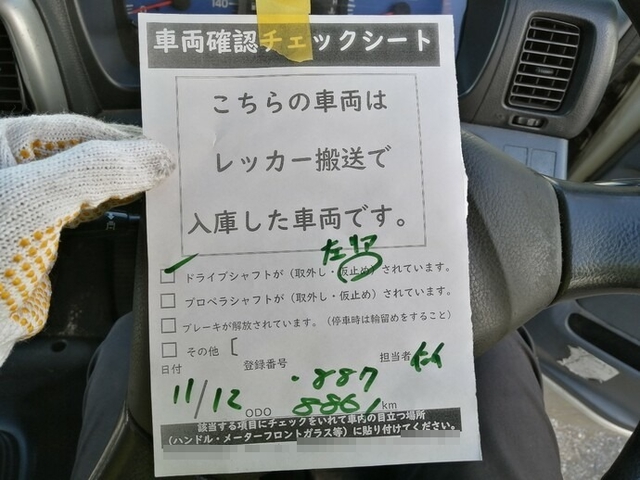 140
車両確認チェックシート
こちらの車両は
レッカー搬送で
入庫した車両です。
左リア
✓□ ドライブシャフトが（取外し・仮止め）されています。
□ プロペラシャフトが（取外し・仮止め）されています。
□ ブレーキが解放されています。（停車時は輪留めをすること）
□ その他 [
日付 登録番号 担当者
11/12 ・887
ODO 8861 km
該当する項目にチェックをいれて車内の目立つ場所
（ハンドル・メーターフロントガラス等）に貼り付けてください。